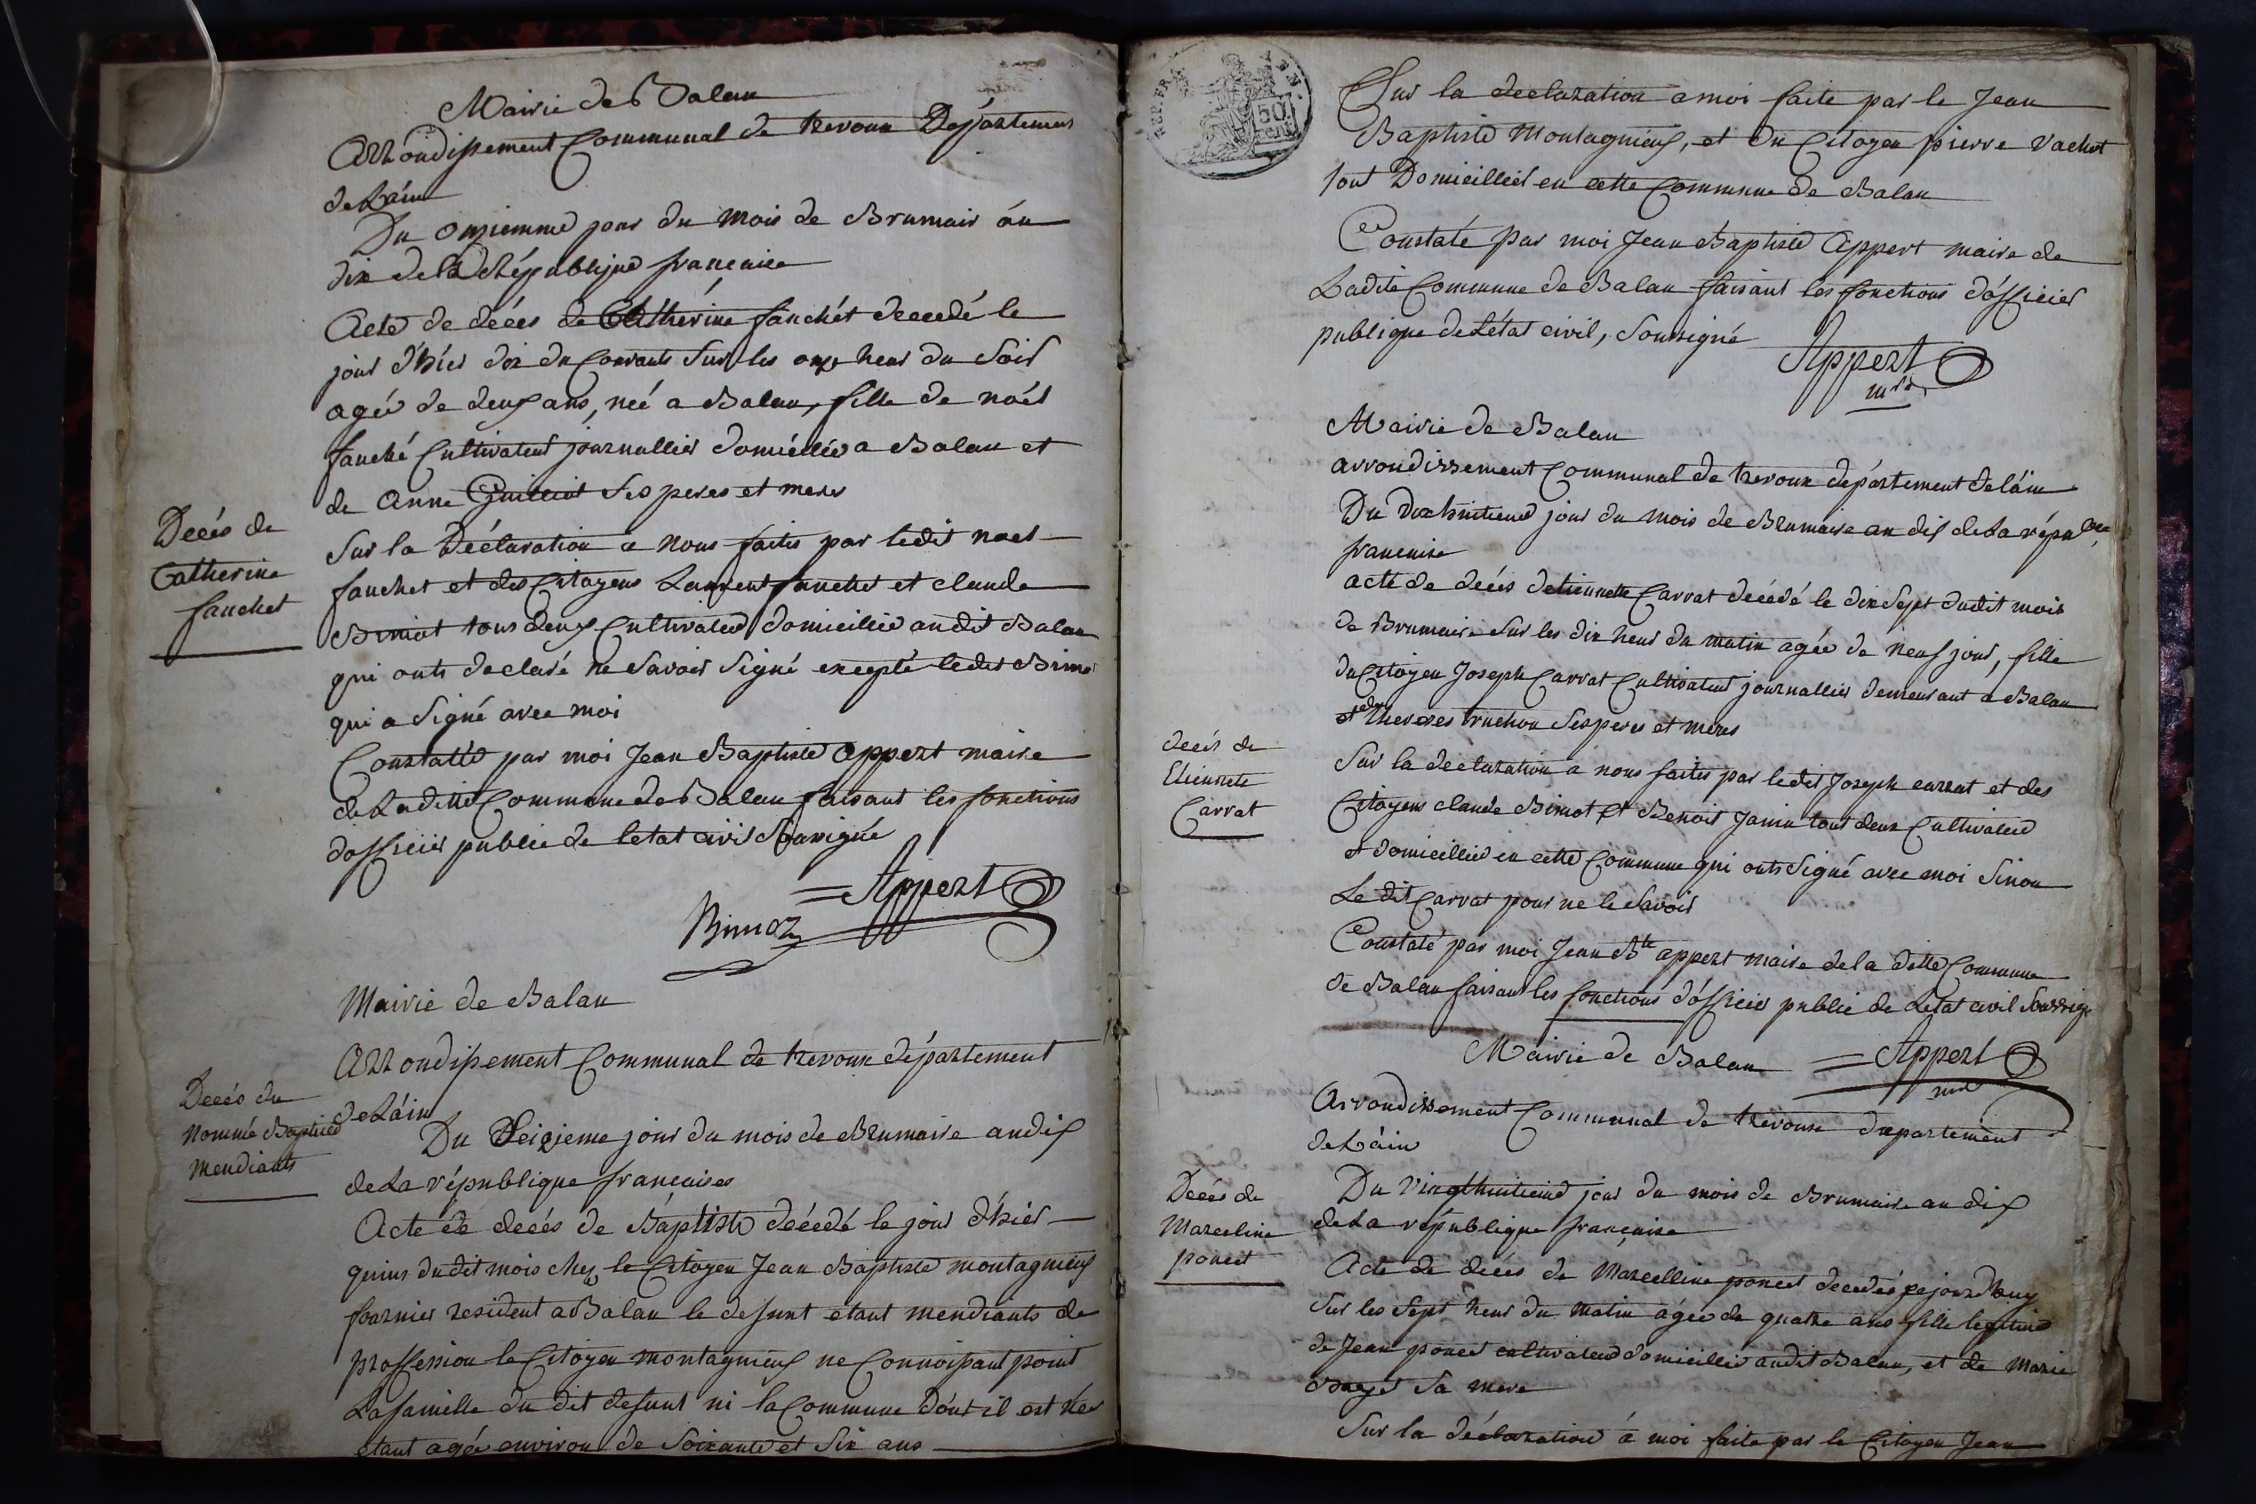 Mairie de Balan
Arrondissement Communal de trevoux Département
de Láin
Du onziemme jour du mois de Brumair án
dix de la République francaise
Acte de décés de Cathérine fanchét decedé le
jour d'hier dix du Courants Sur les onze heur du Soir
agée de deux ans, neé a Balan, fille de noél
fanché Cultivateur journallier domiéllié a Balan et
de Anne Guilliot Ses peres et meres
Decés de
Catherine
fanchet
Sur la Déclaration a nous faites par ledit noel
fanchet et des Citoyens Laurent fanchet et claude
Bimot tous deux Cultivateur domicillié audit Balan
qui onts declaré ne Savoir Signé excepté ledit Bimot
qui a Signé avec moi
Constatté par moi Jean Baptiste Appert maire
de Laditte Commune de Balan faisant les fonctions
d'officier public de letat civil Soussigné
Appert
Bimoz
Mairie de Balan
Arrondissement Communal de trevoux département
de Láin
Decés du
nommé Baptiste
mendiants
Du Seizieme jour du mois de Brumaire an dix
de La république françaises
Acte de decés de Baptiste decédé le jour d'hier
quins dudit mois chez le Citoyen Jean Baptiste montagnieux
fournier resident a Balan le defunt étant mendiants de
proffession le Citoyen montagnieux ne Connoissant point
La famille du dit defunt ni la Commune dónt il est né
étant agée environ de Soixante et Six ans
REP. FRA.
50
cent
Sur la declaration a moi faite par le Jean
Baptiste Montagnieux, et du Citoyen pierre Vachot
tout Domicilliés en cette Commune de Balan
Constaté par moi Jean Baptiste Appert maire de
Ladite Commune de Balan faisant les fonctions d'officier
publique de Létat civil, Soussigné
Appert
Mairie de Balan
arrondissement Communal de trevoux département de láin
Du Dixhuitieme jour du mois de Brumaire an dix de La répu bque
francaise
acte de decés detiennette Carrat decédé le dix Sept dudit mois
de Brumaire Sur les dix heur du matin agée de neuf jour, fille
du Citoyen Joseph Carrat Cultivateur journallier demeurant a Balan
et de thereses truchon Ses peres et meres
decés de
Etiennete
Carrat
Sur la declaration a nous faites par ledit Joseph carrat et des
Citoyens claude Bimot et Benoit Janin tout deux Cultivateur
et domicillié en cette Commune qui onts Signé avec moi Sinon
Le dit Carrat pour ne le Savoir
Constaté par moi Jean Bte appert maire de la ditte Commune
de Balan faisant les fonctions d'officier public de Létat civil Soussigné
Mairie de Balan
Appert
Arrondissement Communal de trevoux département
de Láin
Decés de
Marceline
poncet
Du vingthuitieme jour du mois de Brumaire an dix
de La république française
Acte de decés de Marcelline poncet decedeé cejourd'huy
Sur les Sept heur du matin ágée de quatre ans fille legitime
de Jean poncet cultivateur domicillié audit Balan, et de Marie
Buget Sa mere
Sur la déclaration á moi faite par le Citoyen Jean